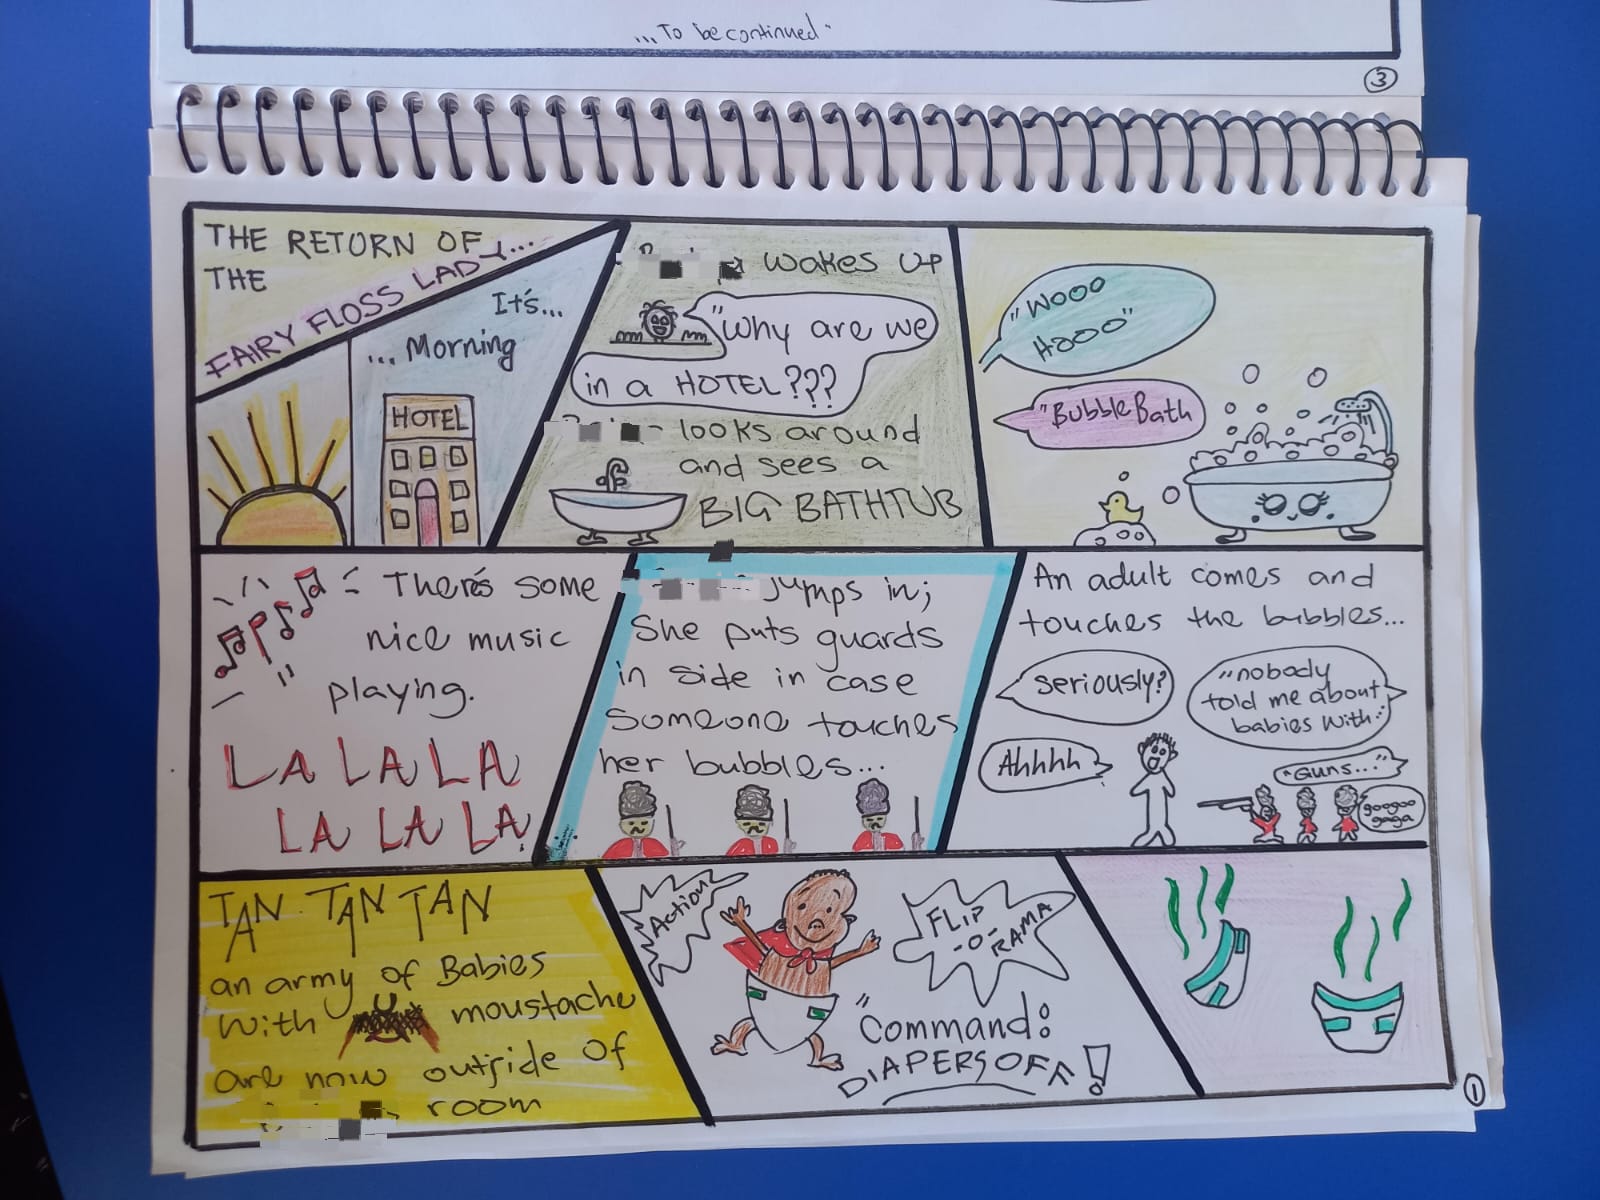 ...To be continued"
3
THE RETURN OF
THE
FAIRY FLOSS LADY...
It's...
...Morning
HOTEL
wakes up
"Why are we
in a HOTEL???
looks around
and sees a
BIG BATHTUB
"Wooo
Hooo"
"Bubble Bath
There's some
nice music
playing.
LA LA LA
LA LA LA
Jumps in;
She puts guards
in side in case
someone touches
her bubbles...
An adult comes and
touches the bubbles...
Seriously?
"nobody
told me about
babies with..
Ahhhh
"Guns..."
googoo
gaga
TAN TAN TAN
an army of Babies
with moustache
are now outside of
room
Action
FLIP
-O-
RAMA
"Command:
DIAPERS OFF!
1